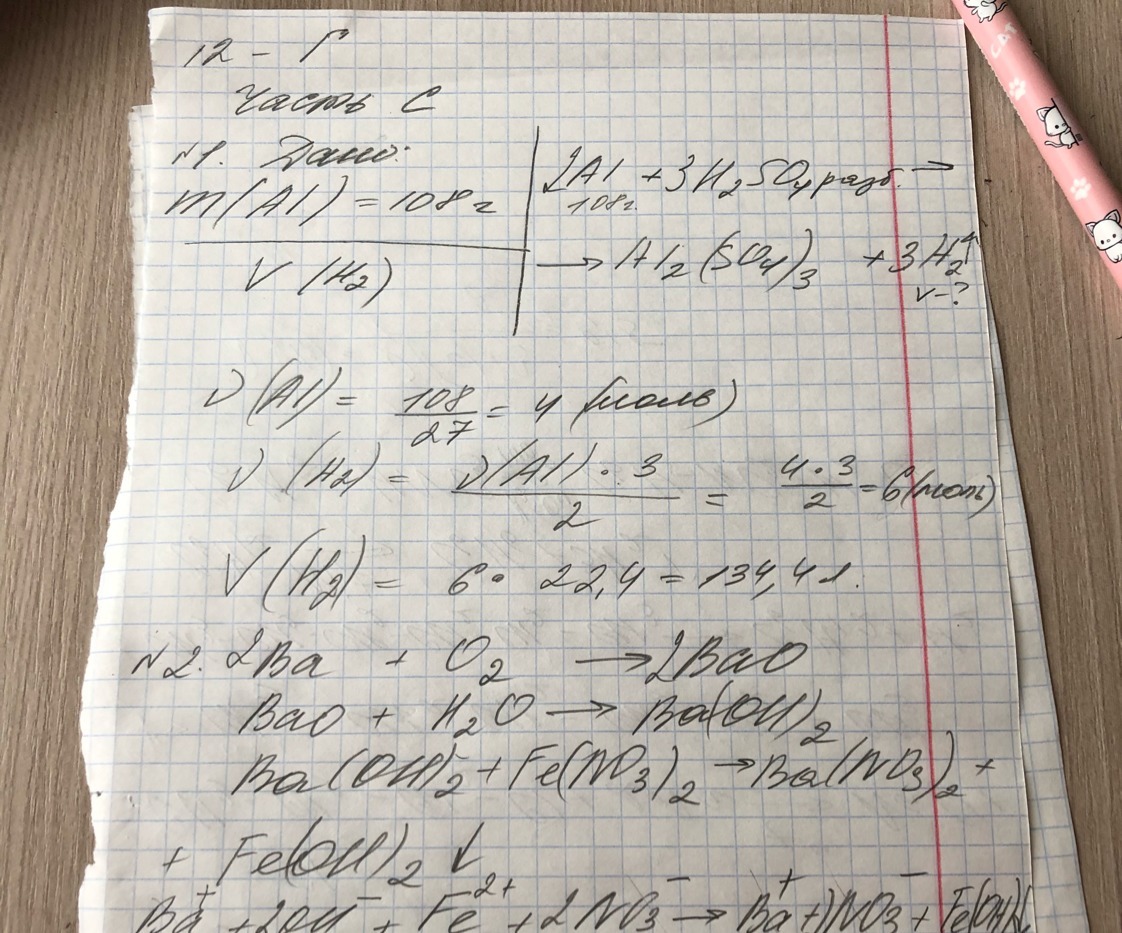 CAT
12 - Г
Часть С
№1. Дано:
m(Al) = 108 г
V (H₂)
2Al + 3H₂SO₄ разб. →
108г.
→ Al₂(SO₄)₃ + 3H₂↑
V-?
ν(Al) = 108/27 = 4 (моль)
ν (H₂) = ν(Al) · 3/2 = 4·3/2 = 6(моль)
V(H₂) = 6 · 22,4 = 134,4 л.
№2. 2Ba + O₂ → 2BaO
BaO + H₂O → Ba(OH)₂
Ba(OH)₂ + Fe(NO₃)₂ → Ba(NO₃)₂ +
+ Fe(OH)₂ ↓
Ba⁺ + 2OH⁻ + Fe²⁺ + 2NO₃⁻ → Ba⁺ + NO₃⁻ + Fe(OH)₂↓